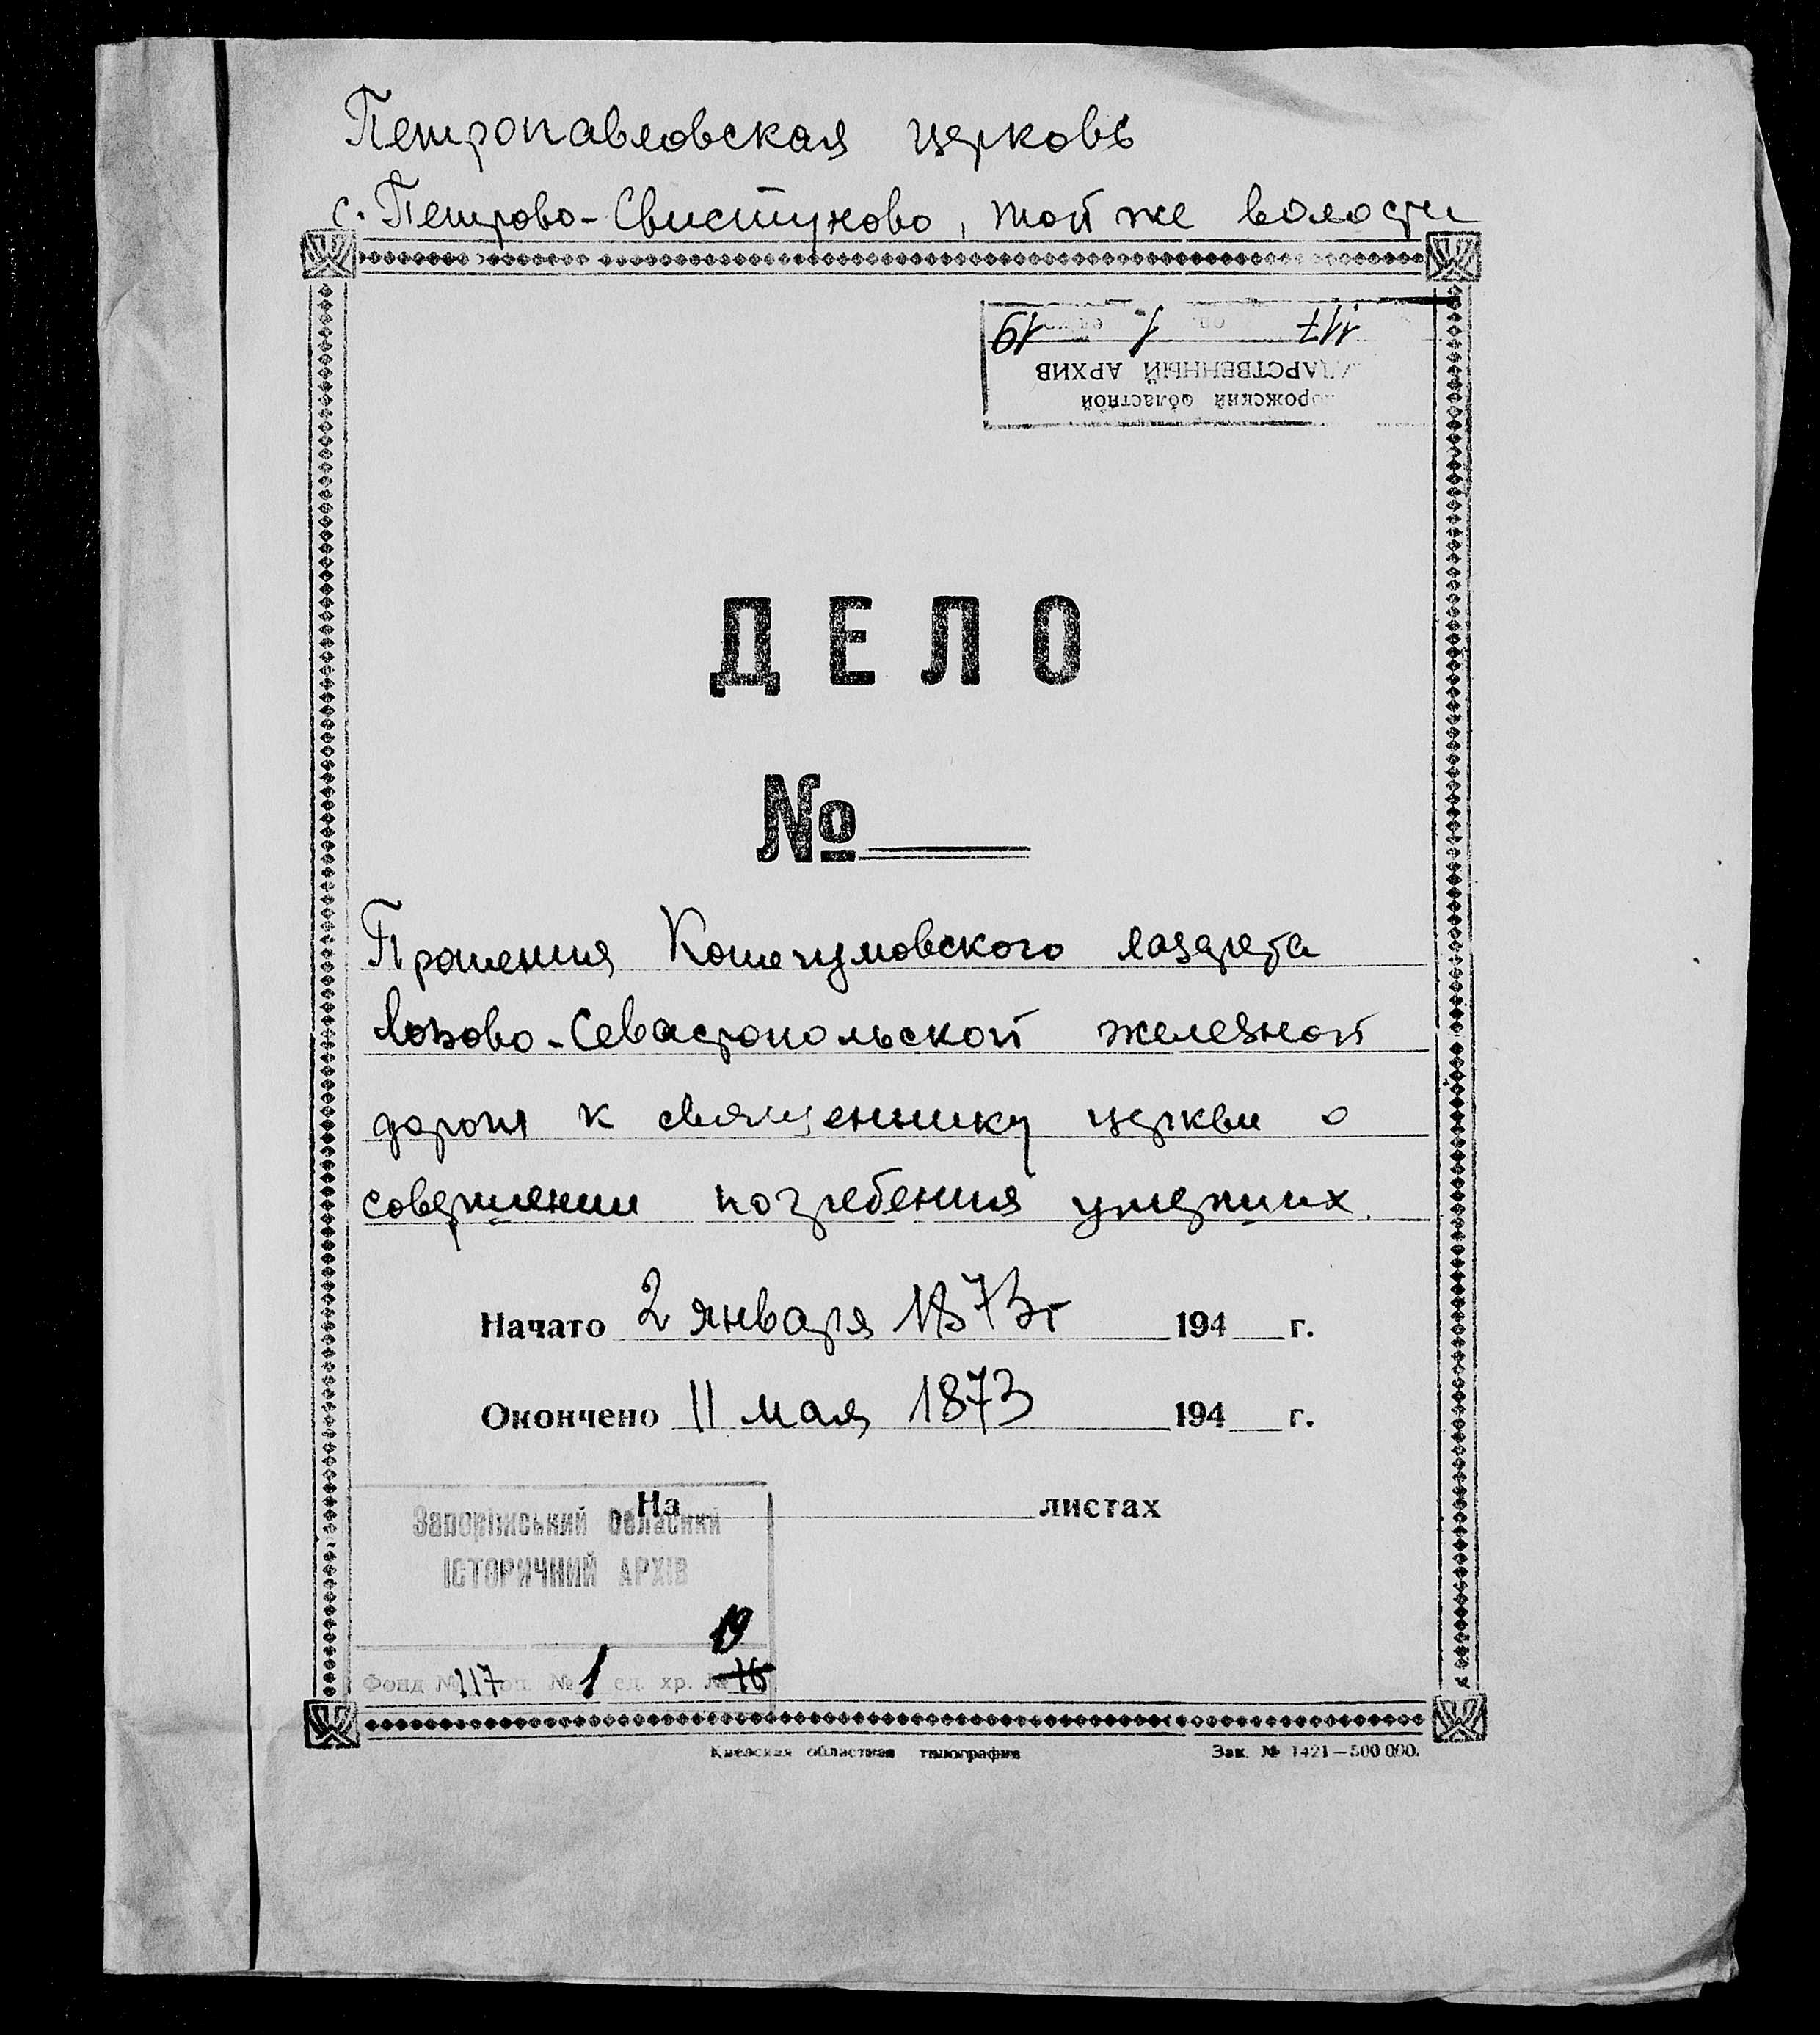 Петропавловская церковь
с. Петрово-Свистуново, той же волости
117 оп. 1 19
ДАРСТВЕННЫЙ АРХИВ
орожский областной
ДЕЛО
№
Прошения Кошегумовского лазарета
Лозово-Севастопольской железной
дороги к священнику церкви о
совершении погребения умерших.
Начато 2 января 1873г 194 г.
Окончено 11 мая 1873 194 г.
На листах
Запоріжський Обласний
ІСТОРИЧНИЙ АРХІВ
19
Фонд № 117 оп. № 1 ед. хр. № 16
Киевская областная типография Зак. № 1421—500 000.